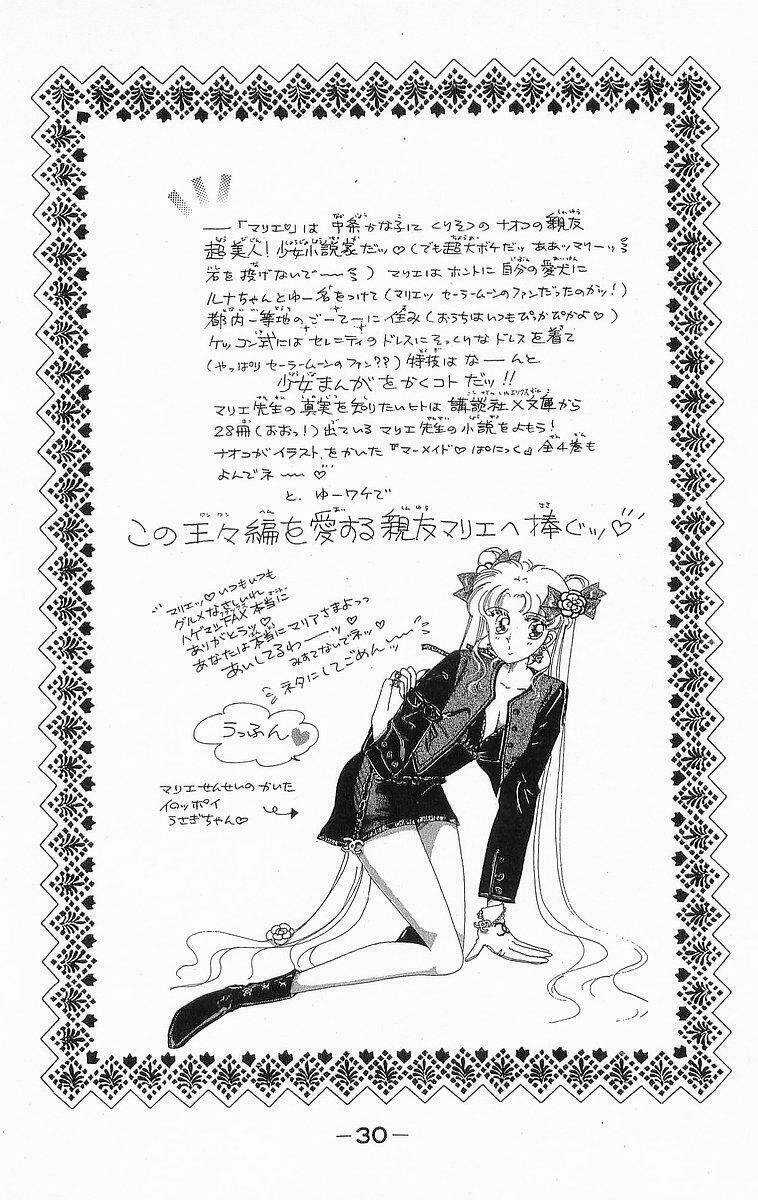 ――『マリエ』は 中条かな子に くりそつの ナオコの親友
超美人！少女小説家だッ♡（でも超大ボケだッ ああッマリーッ
岩を投げないで――）マリエは ホントに 自分の愛犬に
ルナちゃんとゆー名をつけて（マリエッ セーラームーンのファンだったのかッ！）
都内一等地のごーてーに 住み（おうちはいつもぴかぴかよ♡）
ケッコン式には セレニティのドレスにそっくりな ドレスを着て
（やっぱり セーラームーンのファン？？）特技は なーんと
少女まんがをかくコトだッ!!
マリエ先生の真実を知りたいヒトは 講談社X文庫から
28冊（おおっ！）出ている マリエ先生の小説をよもう！
ナオコがイラストをかいた『マーメイド♡ぱにっく』全4巻も
よんでネ―― ♡
と、ゆーワケで
この 王々編を愛する親友マリエへ 捧ぐッ♡
マリエッ♡いつもいつも
グルメなさしいれ、
ハゲマシFAX 本当に
ありがとうッ♡
あなたは本当にマリアさまよっっ
あいしてるわーーッ♡
みすてないでネッ♡
ネタにしてごめんッ
うっふん♥
マリエせんせいの かいた
イロッポイ
うさぎちゃん♡
－30－